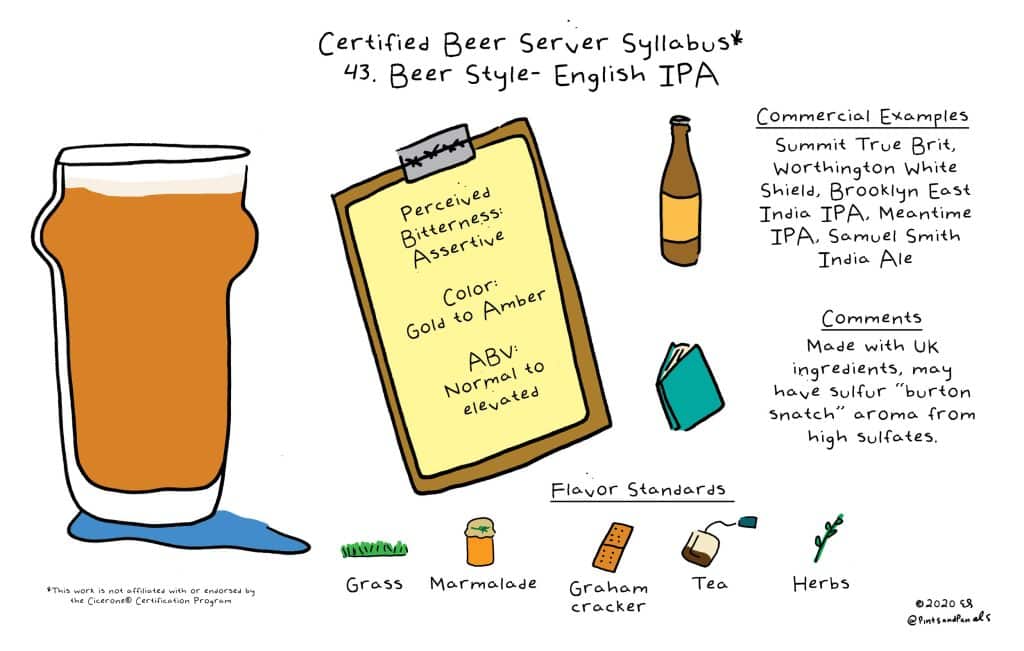 Certified Beer Server Syllabus*
43. Beer Style- English IPA
Perceived
Bitterness:
Assertive
Color:
Gold to Amber
ABV:
Normal to
elevated
Commercial Examples
Summit True Brit,
Worthington White
Shield, Brooklyn East
India IPA, Meantime
IPA, Samuel Smith
India Ale
Comments
Made with UK
ingredients, may
have sulfur "burton
snatch" aroma from
high sulfates.
Flavor Standards
Grass
Marmalade
Graham
cracker
Tea
Herbs
*This work is not affiliated with or endorsed by
the Cicerone® Certification Program
©2020
@PintsandPanels